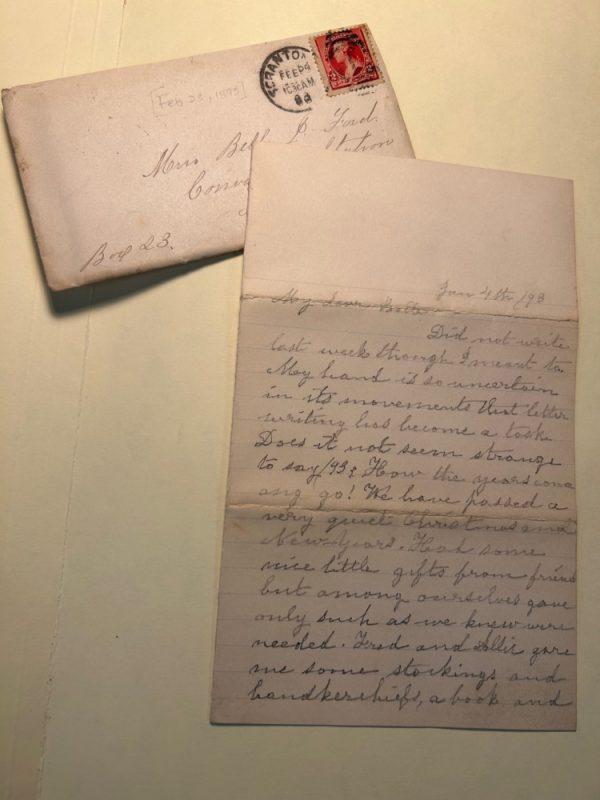 SCRANTON
FEB 24
10 30 AM
93
[Feb 23, 1893]
Miss Belle C. Ford.
Station
Box 23.
Jan 4th /93
My dear Belle
Did not write
last week though I meant to.
My hand is so uncertain
in its movements that letter
writing has become a task.
Does it not seem strange
to say /93? How the years come
and go! We have passed a
very quiet Christmas and
New Years. Had some
nice little gifts from friends
but among ourselves gave
only such as we knew were
needed. Fred and gave
me some stockings and
handkerchiefs, a book and